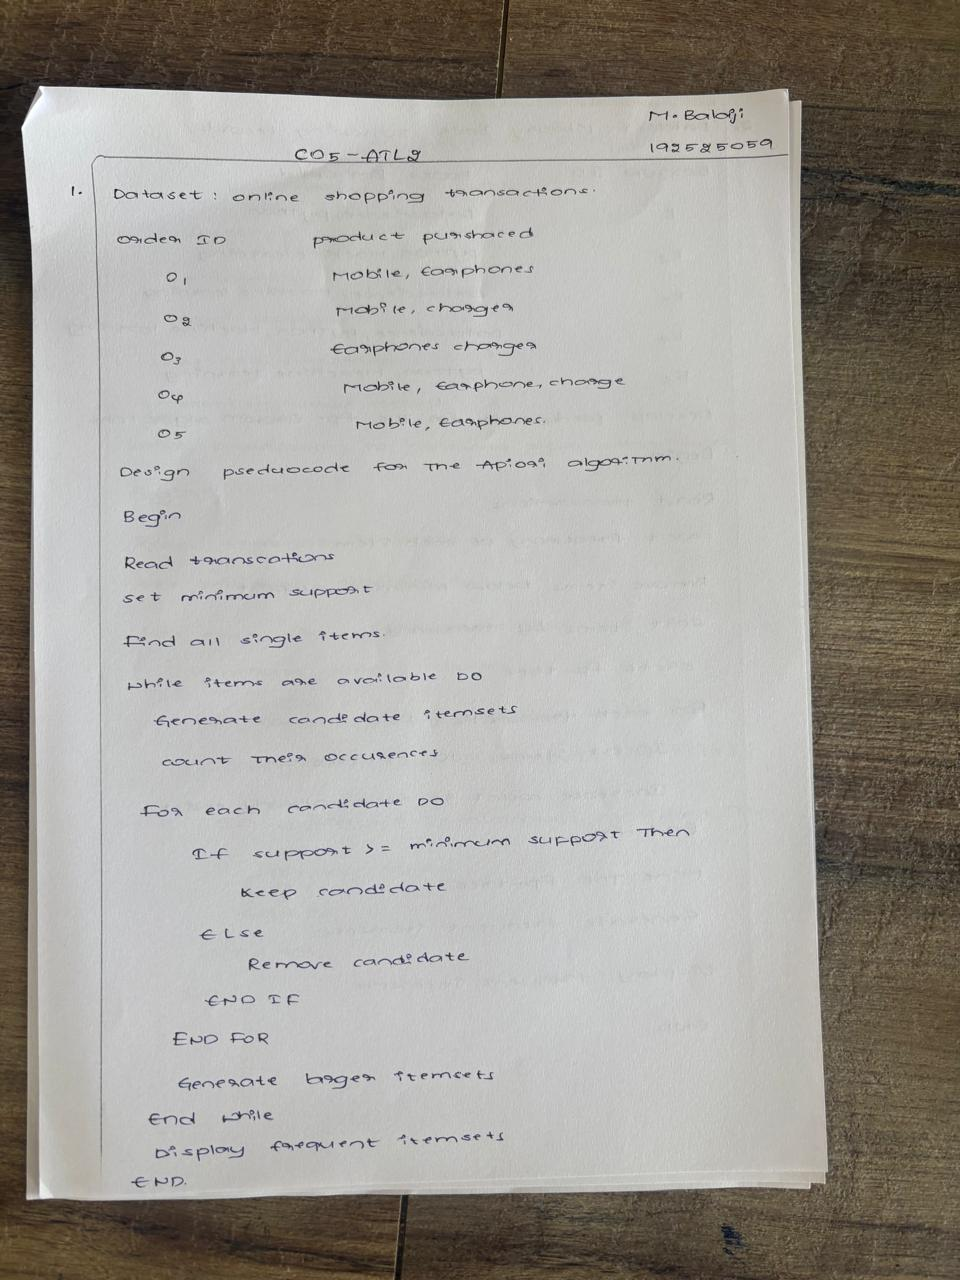 M. Balaji
192525059
CO5-ATL2
1. Dataset: online shopping transactions.
Order ID product purshaced
O1 Mobile, Earphones
O2 Mobile, charger
O3 Earphones charger
O4 Mobile, Earphone, charge
O5 Mobile, Earphones.
Design pseduocode for the Apiori algorithm.
Begin
Read transcations
set minimum support
Find all single items.
while items are available DO
Generate candidate itemsets
count their occurences
For each candidate DO
If support >= minimum support Then
Keep candidate
ELse
Remove candidate
END IF
END FOR
Generate larger itemsets
End while
Display frequent itemsets
END.